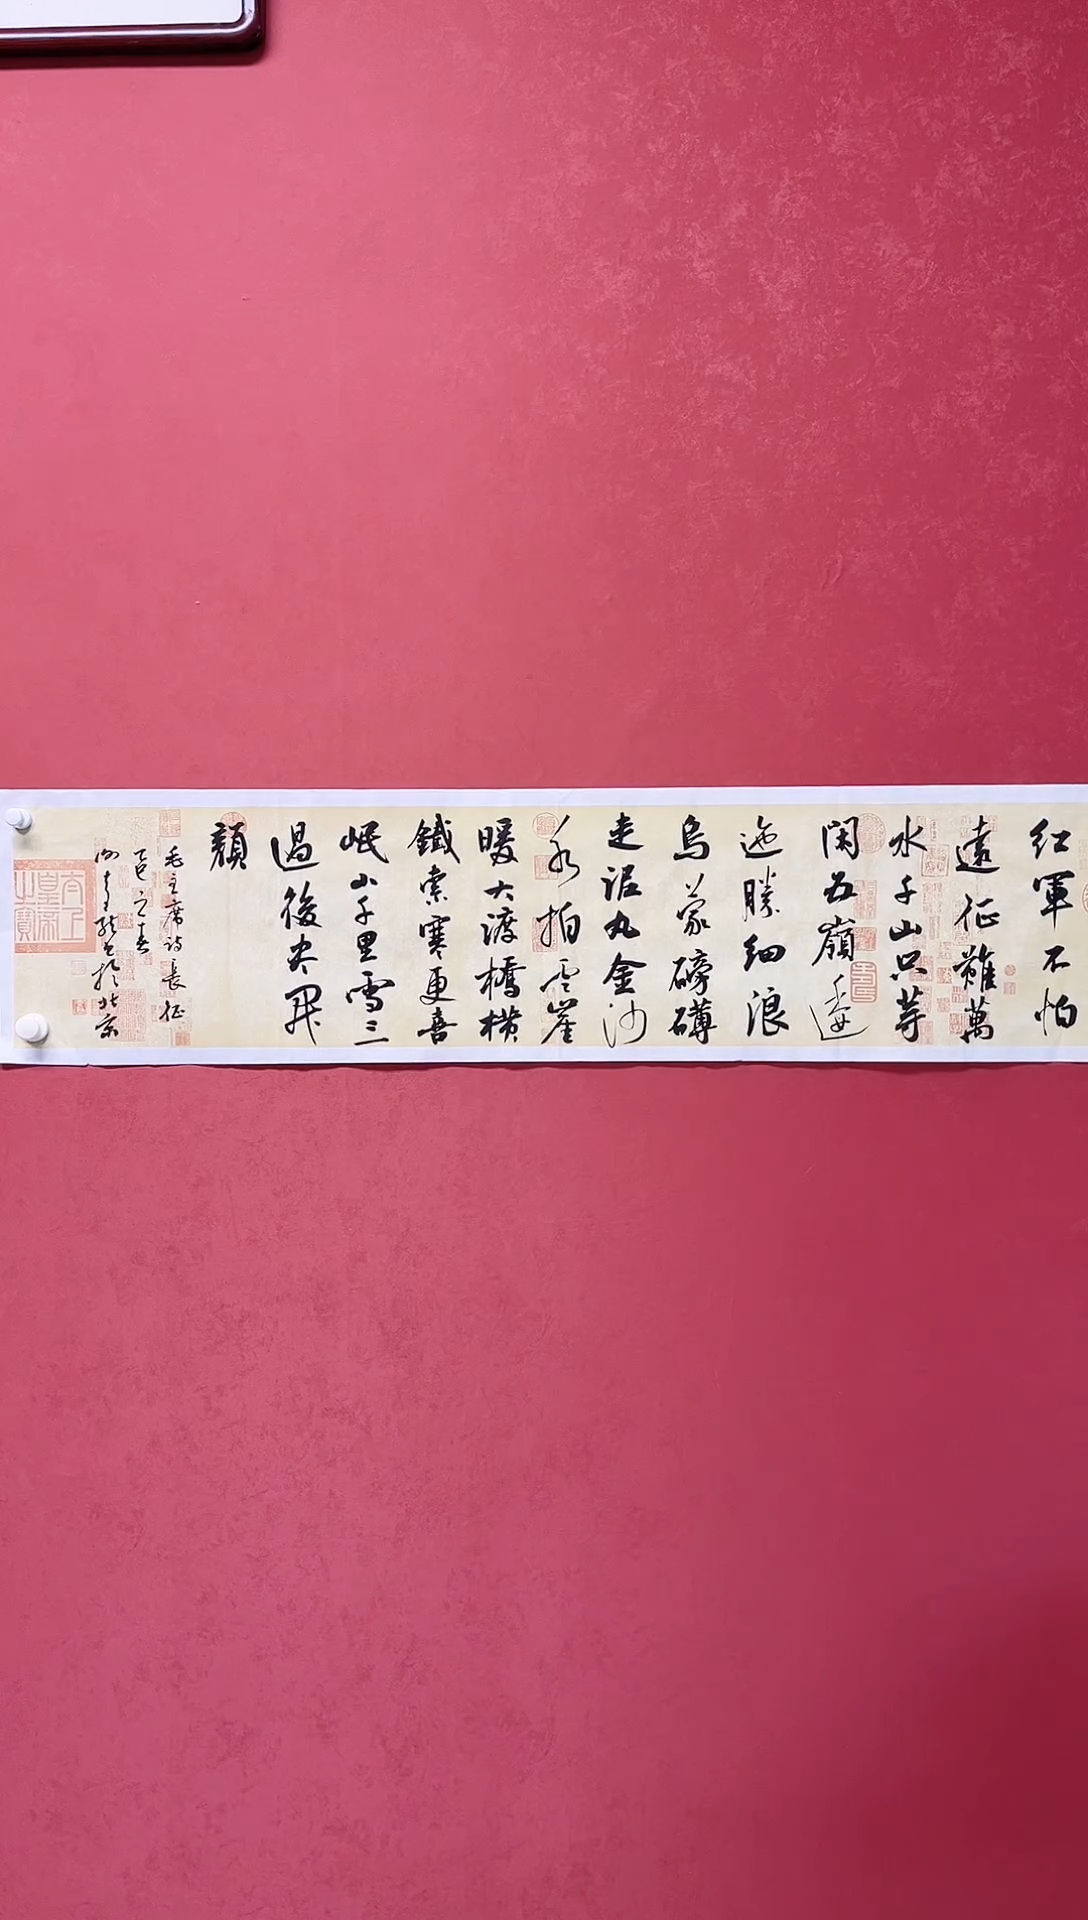 红軍不怕
遠征難萬
水千山只等
閑五嶺逶
迤騰細浪
烏蒙磅礴
走泥丸金沙
水拍雲崖
暖大渡橋横
鐵索寒更喜
岷山千里雪三
過後盡開
顏
毛主席詩長征
乙巳之春
書於北京